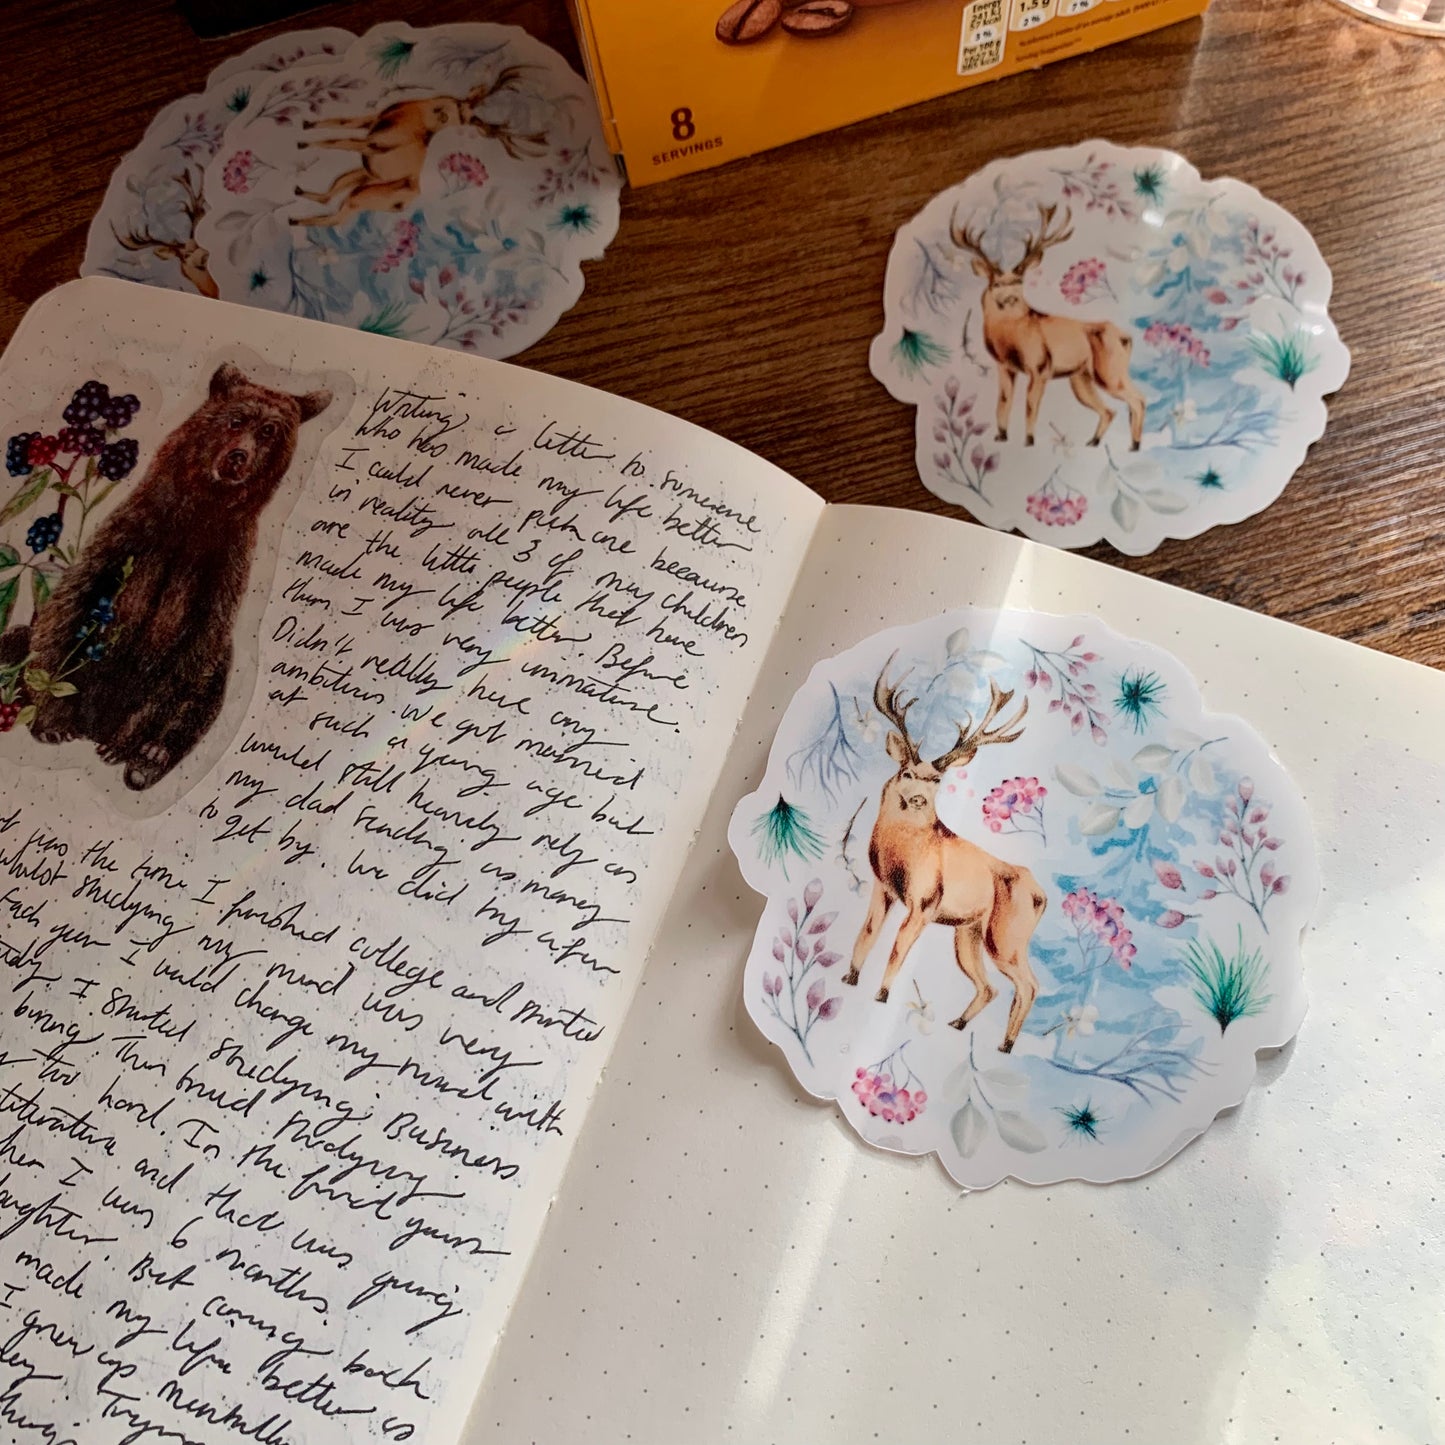 Energy
241 kJ
57 kcal
3%
Per 100 g
1.5 g
2%
7%
8
SERVINGS
Writing a letter to someone
who has made my life better
I could never pick one because
in reality all 3 of my children
are the little people that have
made my life better. Before
them I was very immature.
Didn't really have any
ambitions. We got married
at such a young age but
would still heavily rely on
my dad sending us money
to get by. We did try a few
was the time I finished college and started
whilst studying my mind was very
Each year I would change my mind with
study. I started studying Business
boring. Then tried studying
too hard. In the final years
literature and that was
when I was 6 months
daughter. But coming back
made my life better is
I grew up mentally
things. Trying